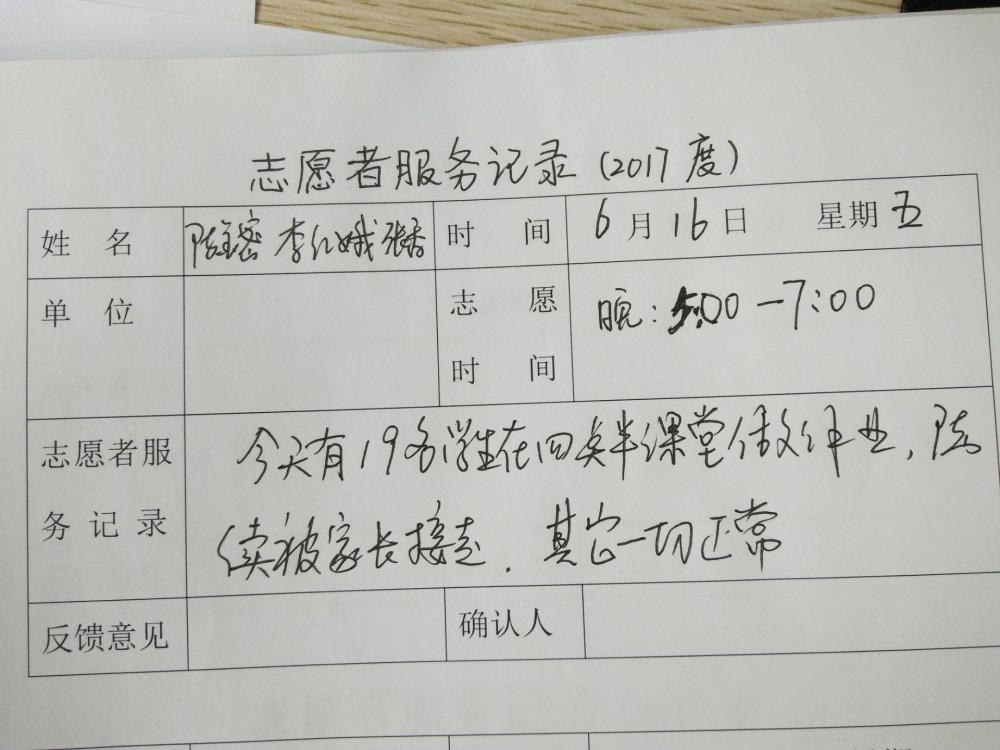 志愿者服务记录(2017度)
姓 名 李仁娥 时 间 6月16日 星期五
单 位 志 愿 时 间 晚:5:00-7:00
志愿者服 今天有19名学生在四点半课堂做作业,陆
务 记 录 续被家长接走.其它一切正常
反馈意见 确认人